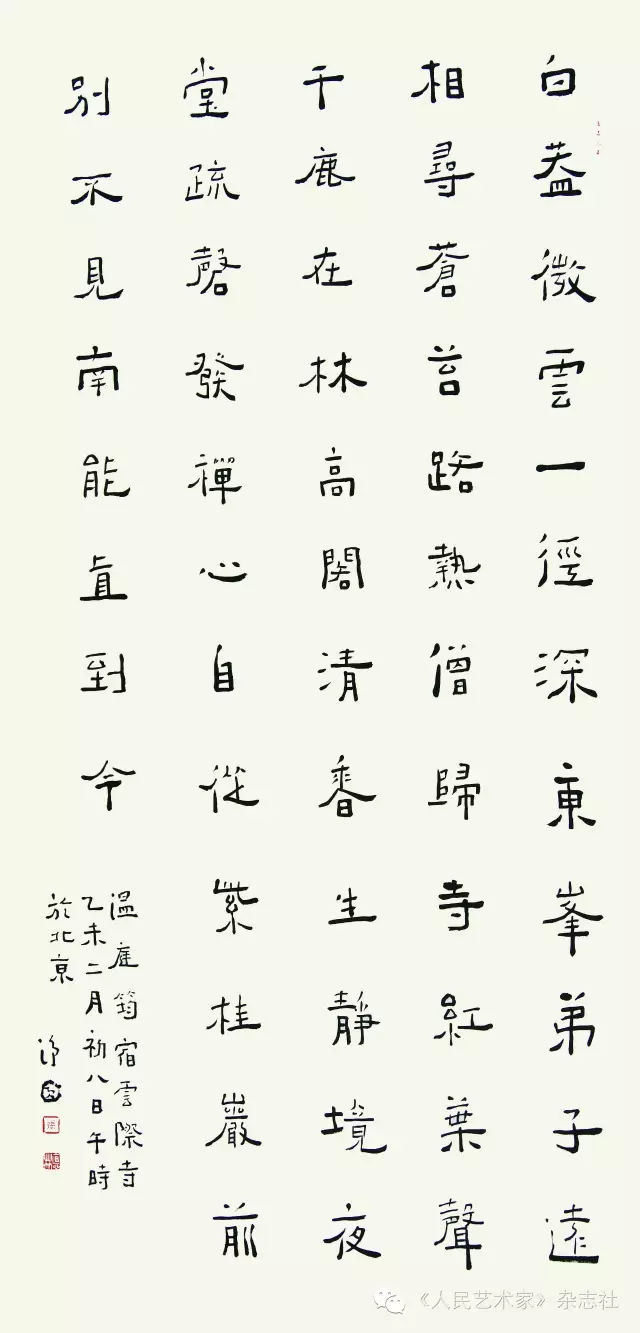 白蓋微雲一徑深東峯弟子遠
相尋蒼苔路熱僧歸寺紅葉聲
干鹿在林高閣清香生靜境夜
堂疏磬發禪心自從紫桂巖前
別不見南能直到今
温庭筠宿雲際寺
乙未二月初八日午時
於北京
《人民艺术家》杂志社